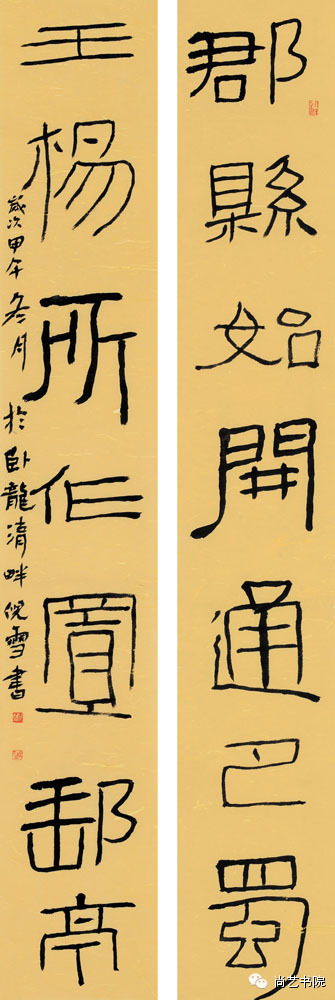 郡縣始開通巴蜀
王楊所作置郵亭
歲次甲午冬月於卧龍清畔倪雪書
尚艺书院